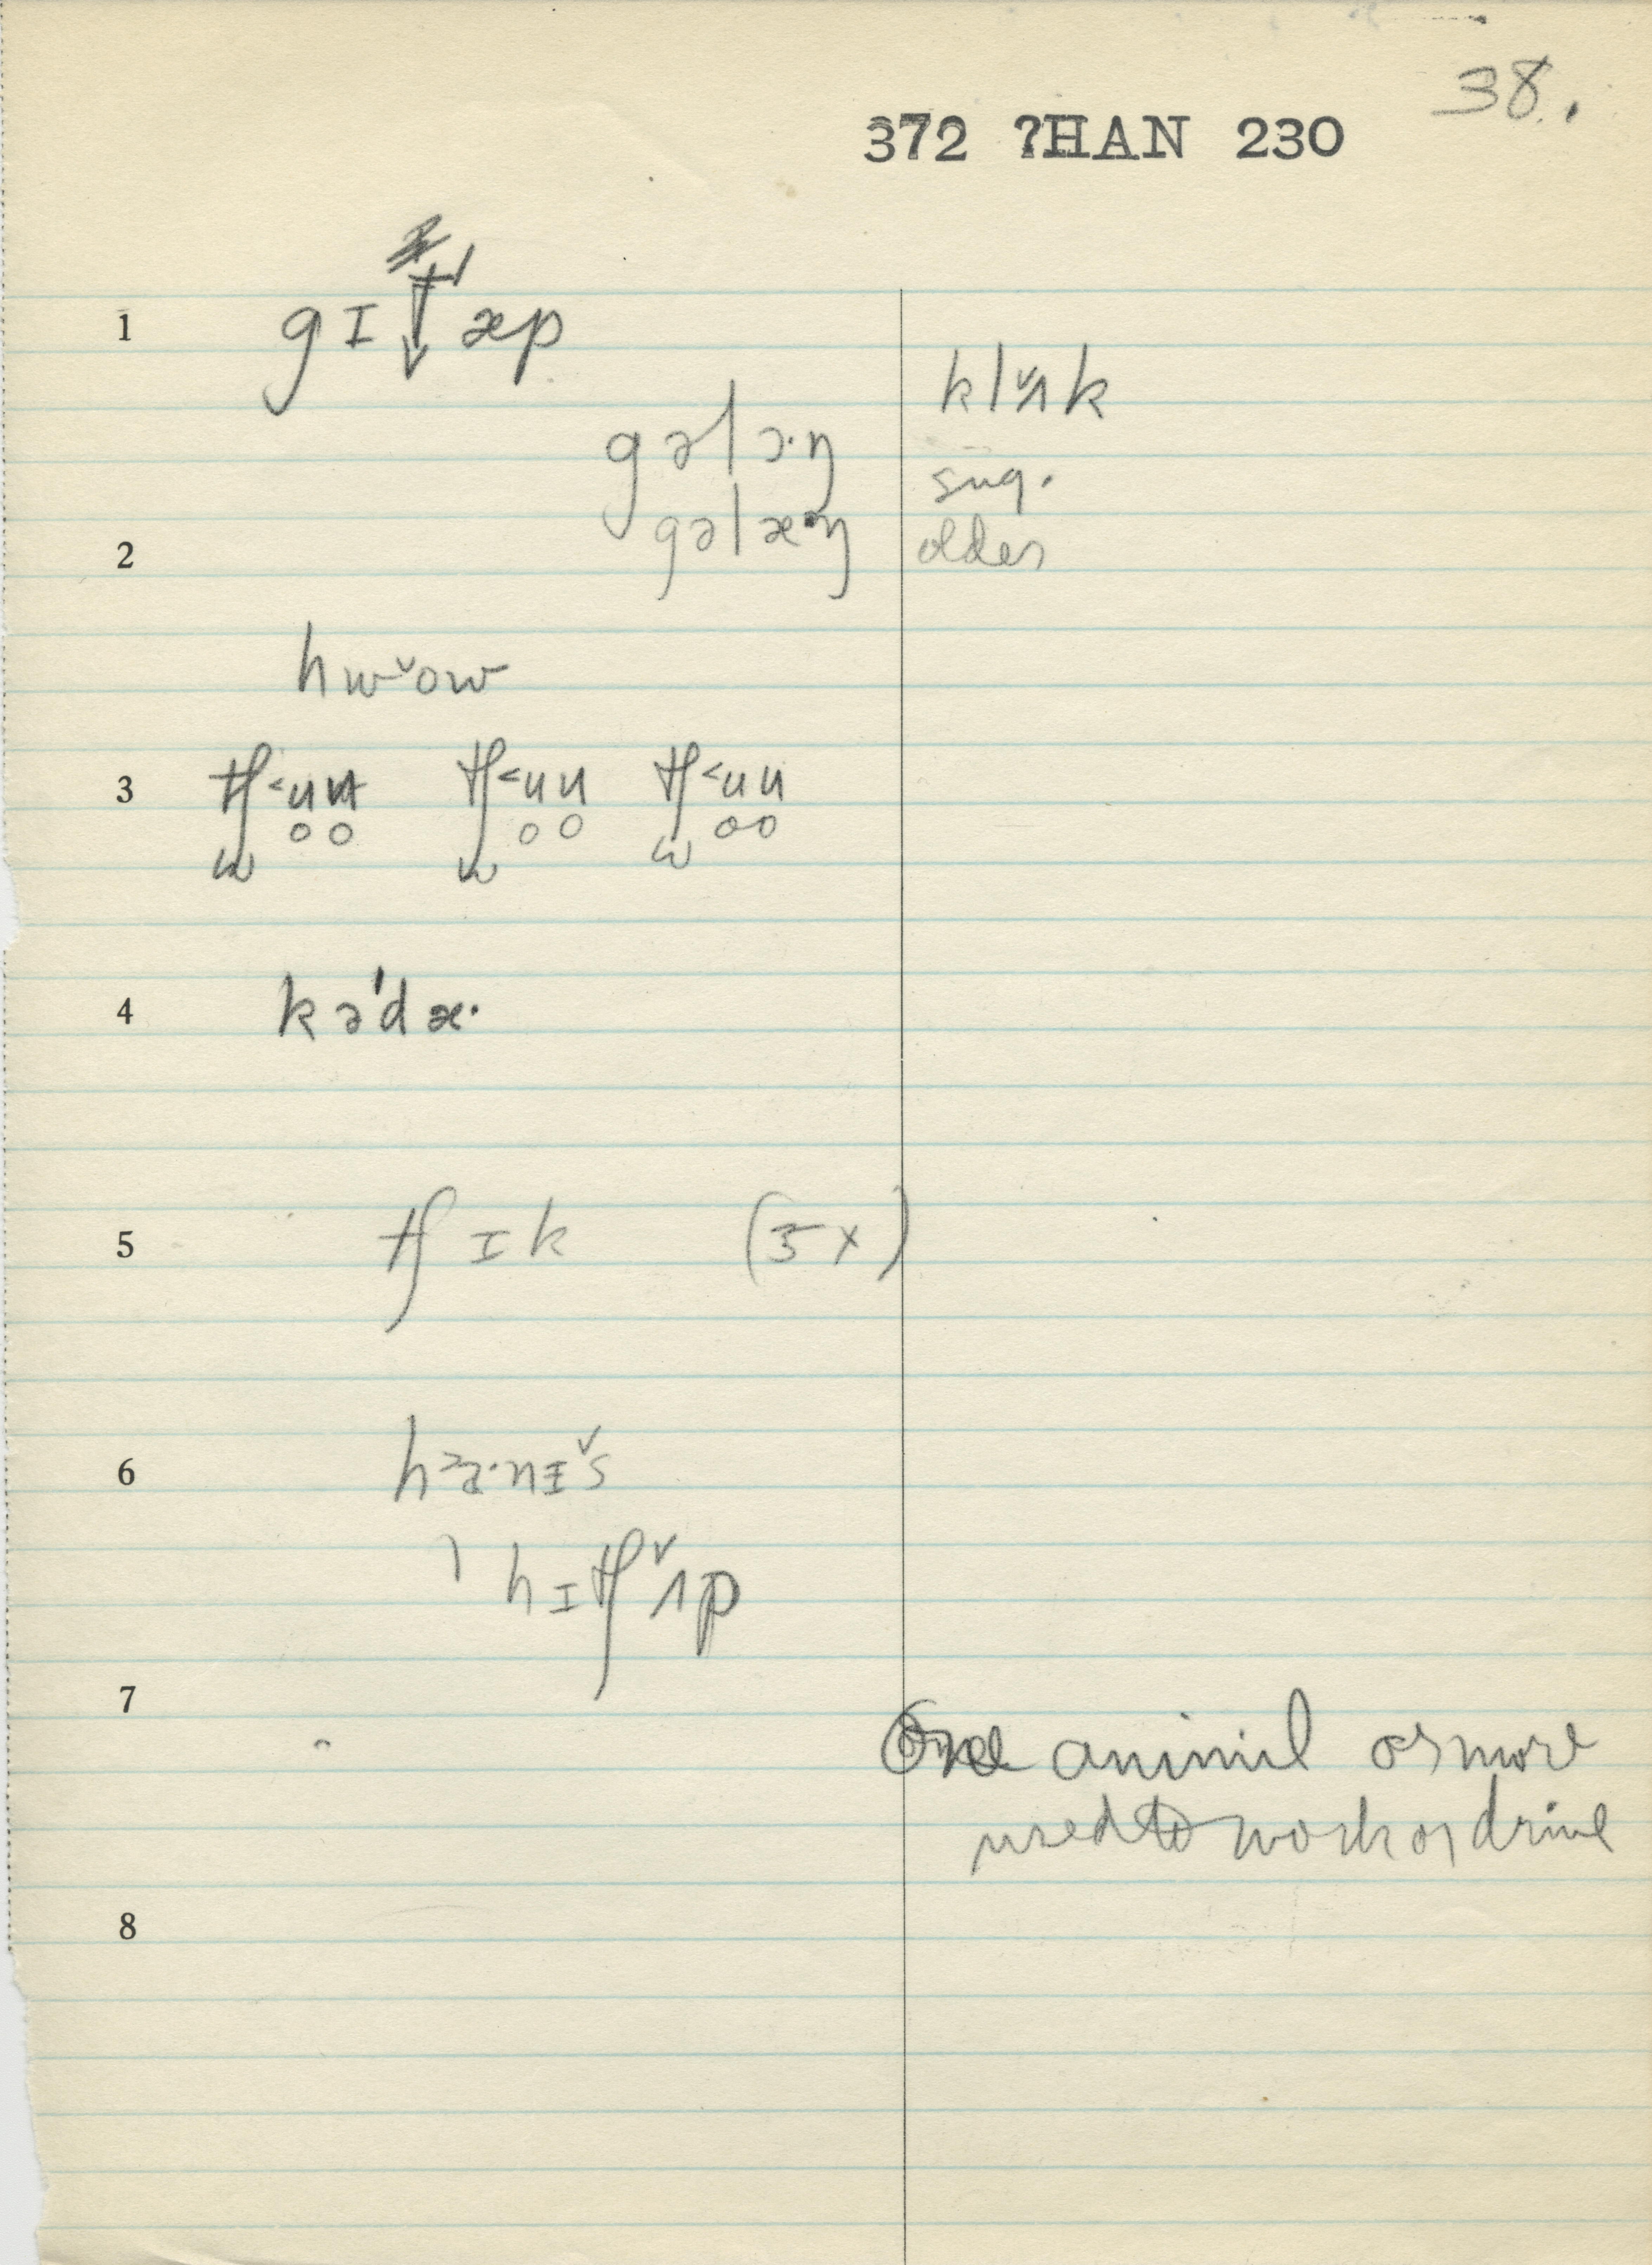 38.
372 ?HAN 230
1 gɪt̬'æp
klʌ̌k
gəlɔ·ŋ sug.
2 gəlæ·ŋ older
hwˇow
3 tʃ˂u̥n̥ tʃ˂u̥n̥ tʃ˂u̥n̥
4 kə'dæ·
5 tʃɪk (5x)
6 ha·nɪs
hɪtʃʌp
7
One animul or more
used to work or drive
8